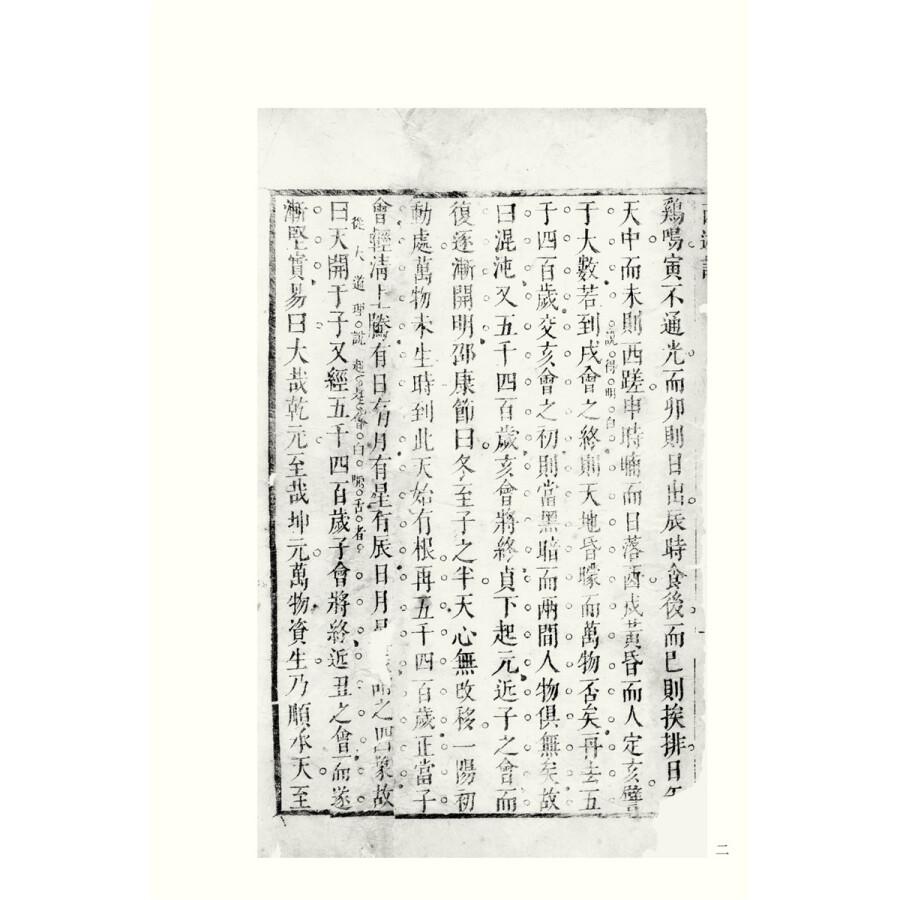 鷄鳴寅不通光而卯則日出辰時食後而巳則挨排日
天中而未則西蹉申時晡而日落酉戌黃昏而人定亥譬
說得明白
于大數若到戌會之終則天地昏曚而萬物否矣再去五
千四百歲交亥會之初則當黑暗而兩間人物俱無矣故
曰混沌又五千四百歲亥會將終貞下起元近子之會而
復逐漸開明邵康節曰冬至子之半天心無改移一陽初
動處萬物未生時到此天始有根再五千四百歲正當子
會輕清上騰有日有月有星有辰日月之四象故
從大道理說起是會白嚼舌者
曰天開于子又經五千四百歲子會將終近丑之會而遂
漸堅實易曰大哉乾元至哉坤元萬物資生乃順承天至
二